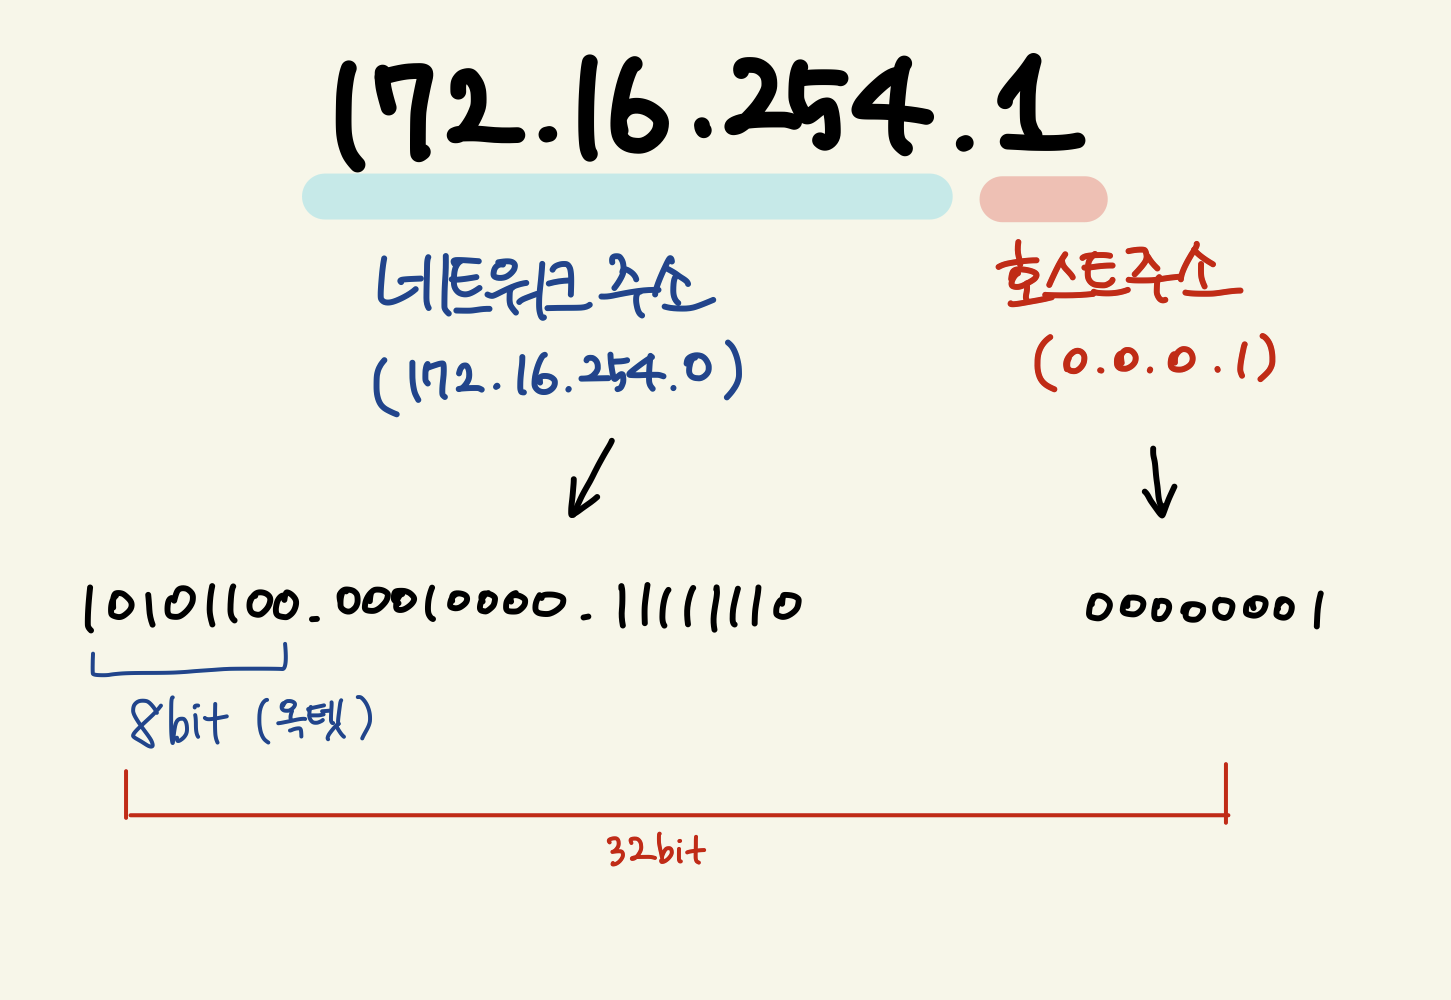 172.16.254.1
네트워크 주소 호스트주소
(172.16.254.0) (0.0.0.1)
10101100.00010000.11111110 00000001
8bit (옥텟)
32bit